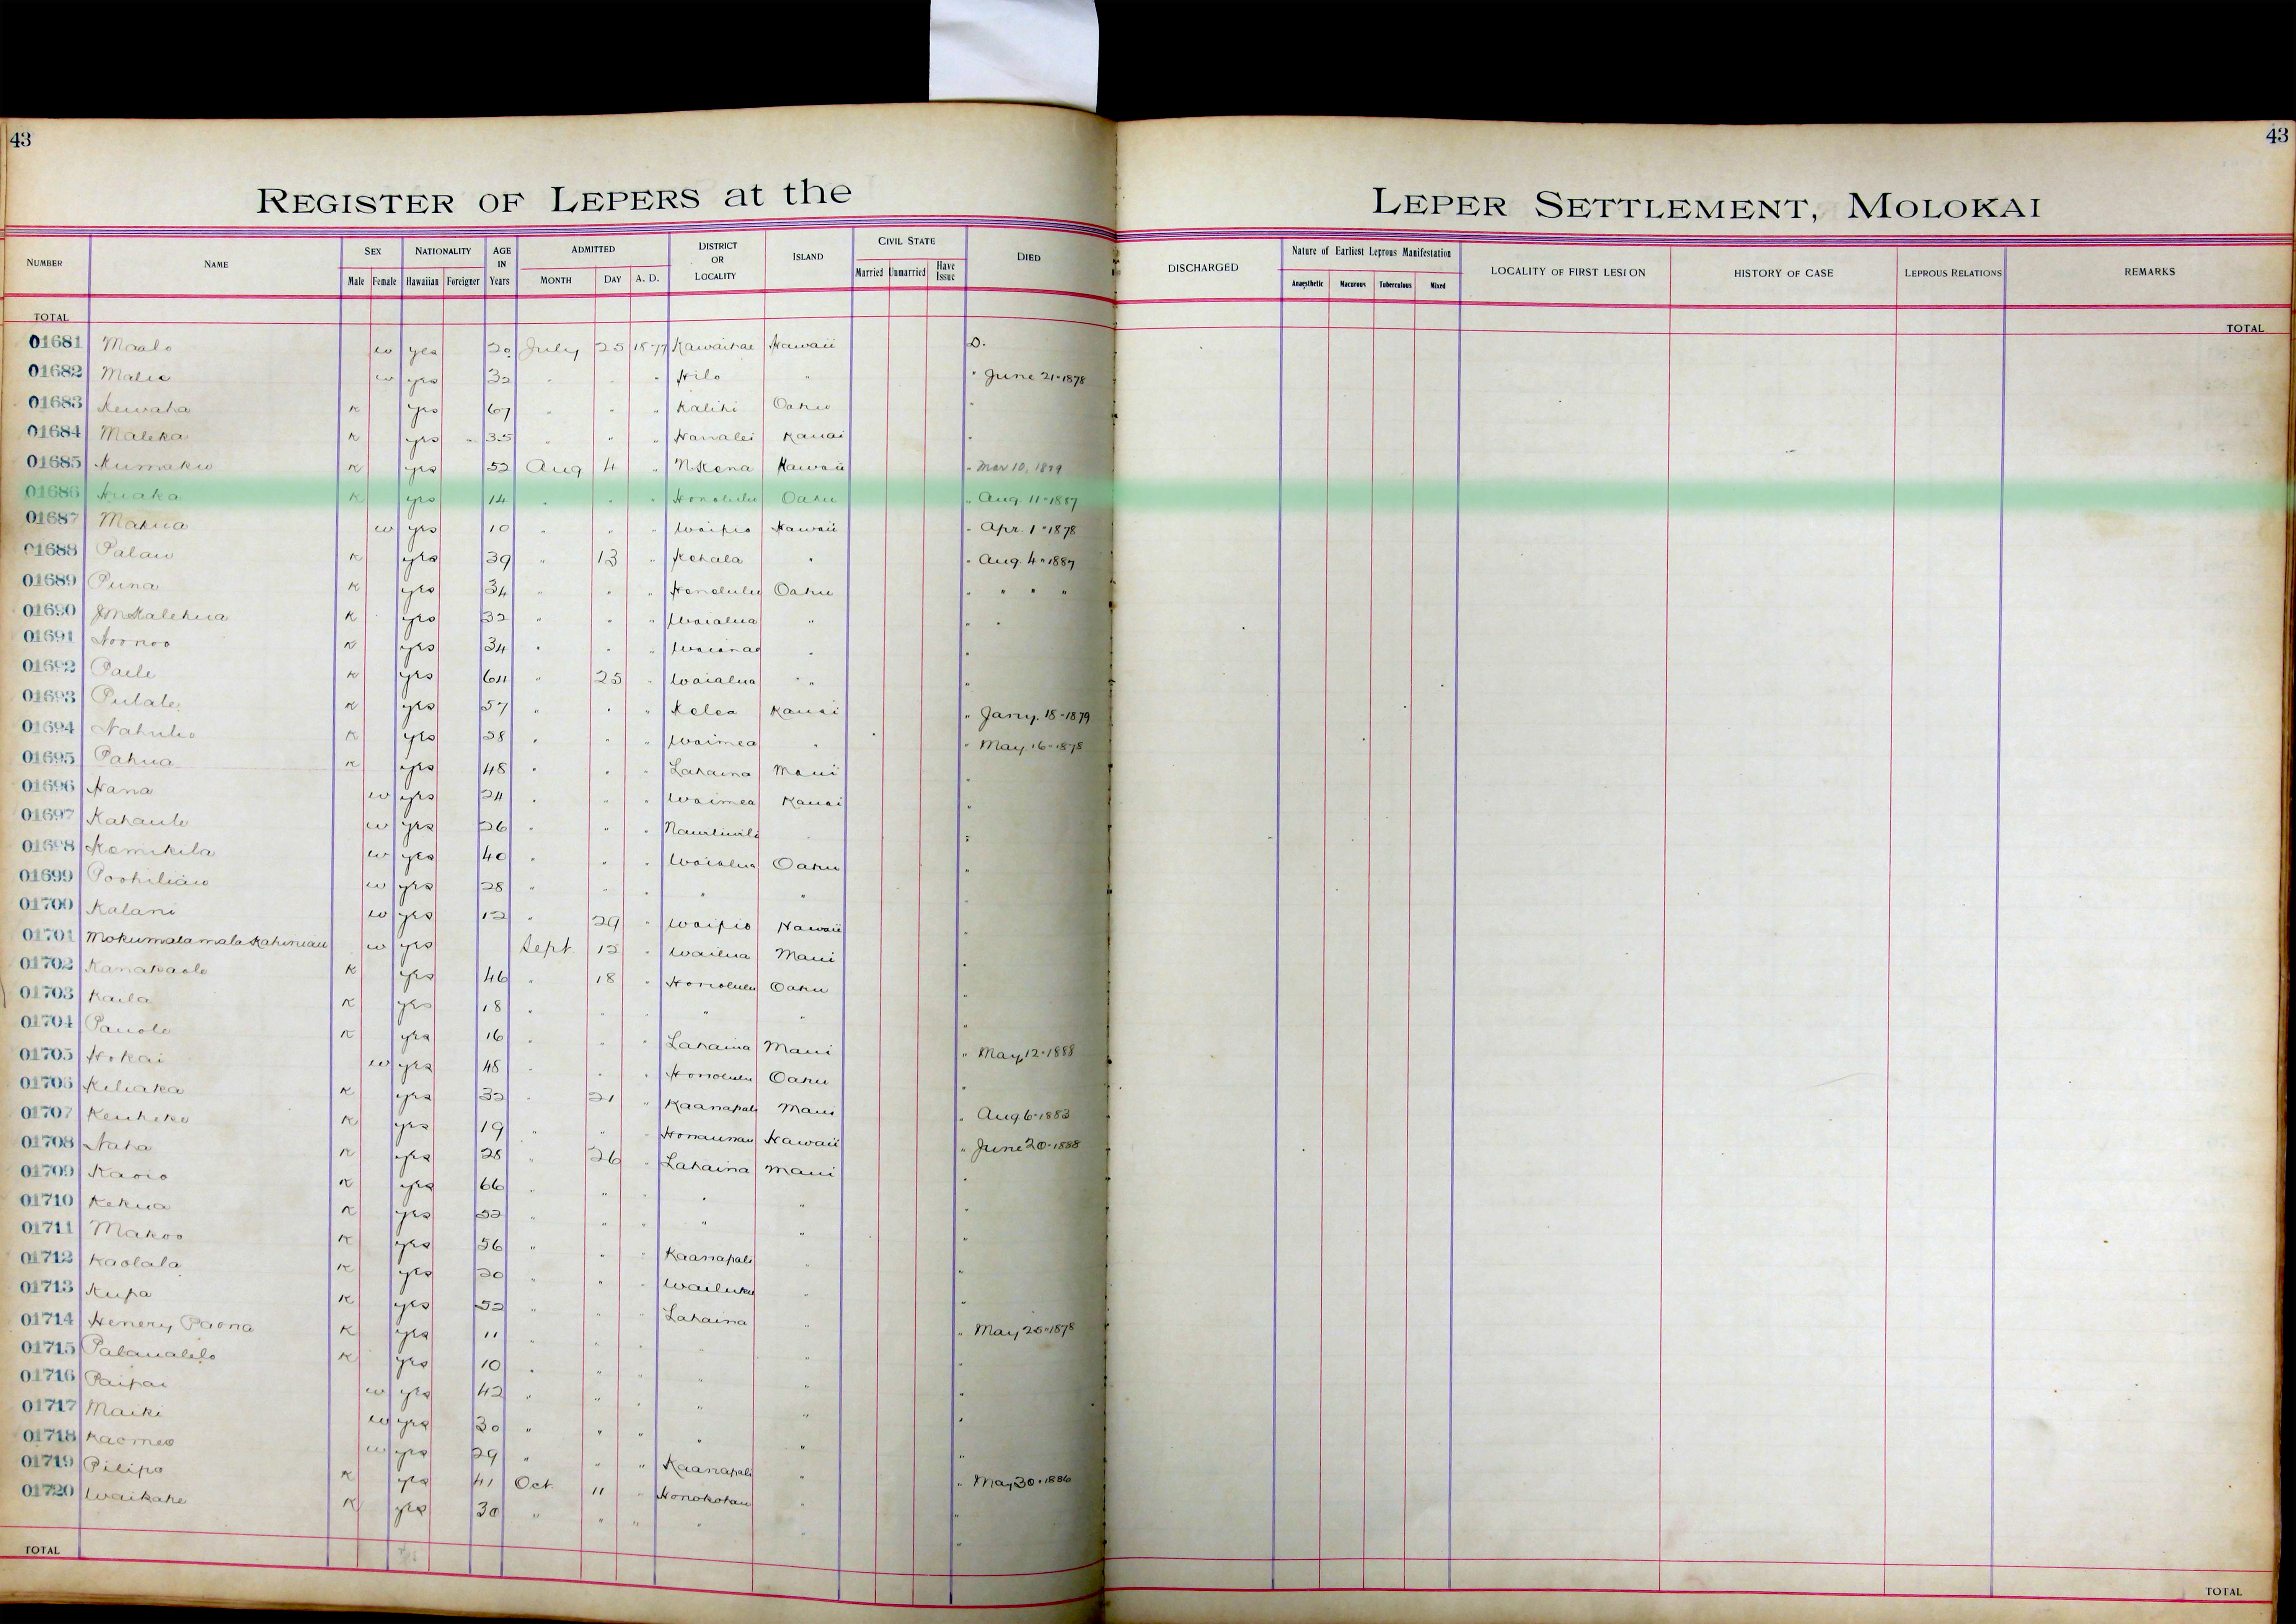 43
43
REGISTER OF LEPERS at the
LEPER SETTLEMENT, MOLOKAI
NUMBER NAME SEX NATIONALITY AGE IN Years ADMITTED DISTRICT OR LOCALITY ISLAND CIVIL STATE DIED
Male Female Hawaiian Foreigner MONTH DAY A. D. Married Unmarried Have Issue
DISCHARGED Nature of Earliest Leprous Manifestation LOCALITY OF FIRST LESION HISTORY OF CASE LEPROUS RELATIONS REMARKS
Anaesthetic Macurous Tuberculous Mixed
TOTAL
TOTAL
01681 Maalo w yes 20 July 25 1877 Kawaihae Hawaii D.
01682 w yes 32 " " " Hilo " " June 21-1878
01683 Kewaha K yes 67 " " " Kalihi Oahu "
01684 Maleka K yes 35 " " " Hanalei Kauai "
01685 Kumaku K yes 52 Aug 4 " N Kona Hawaii " Mar 10, 1879
01686 Huaka K yes 14 " " " Honolulu Oahu " Aug. 11-1887
01687 Makua w yes 10 " " " Waipio Hawaii " Apr. 1-1878
01688 Palau K yes 39 " 13 " Kohala " " Aug. 4-1887
01689 Puna K yes 34 " " " Honolulu Oahu " " " "
01690 J M Kalehua K yes 32 " " " Waialua " " "
01691 Noonoo K yes 34 " " " Waianae " "
01692 Paele K yes 64 " 25 " Waialua " "
01693 Pulale K yes 57 " " " Kolea Kauai " Jany. 18-1879
01694 K yes 28 " " " Waimea " " May 16-1878
01695 Pahua K yes 48 " " " Lahaina Maui "
01696 Hana w yes 24 " " " Waimea Kauai "
01697 Kahaule w yes 26 " " " "
01698 Kamikila w yes 40 " " " Waialua Oahu "
01699 Poohiliau w yes 28 " " " " "
01700 Kalani w yes 12 " 29 " Waipio Hawaii "
01701 Mokumalamala Kahiniau w yes Sept 12 " Wailua Maui "
01702 Kanakaole K yes 46 " 18 " Honolulu Oahu "
01703 Kaila K yes 18 " " " " " "
01704 Pauole K yes 16 " " " Lahaina Maui " May 12-1888
01705 Hokai w yes 48 " " " Honolulu Oahu "
01706 Keliaka K yes 32 " 21 " Kaanapali Maui " Aug 6-1883
01707 Keuheke K yes 19 " " " Honaunau Hawaii " June 20-1888
01708 Naha K yes 28 " 26 " Lahaina Maui "
01709 K yes 66 " " " " " "
01710 Kekua K yes 52 " " " " " "
01711 Makoo K yes 56 " " " Kaanapali " "
01712 Kaolala K yes 20 " " " Wailuku " "
01713 Kupa K yes 52 " " " Lahaina " "
01714 Henery Paona K yes 11 " " " " " " May 25-1878
01715 Palaualelo K yes 10 " " " " " "
01716 Paipai w yes 42 " " " " " "
01717 Maiki w yes 30 " " " " " "
01718 Kaomeo w yes 29 " " " Kaanapali " "
01719 Pilipo K yes 41 Oct 11 " Honokohau " " May 30-1886
01720 Waikahe K yes 30 " " " " " "
TOTAL
TOTAL